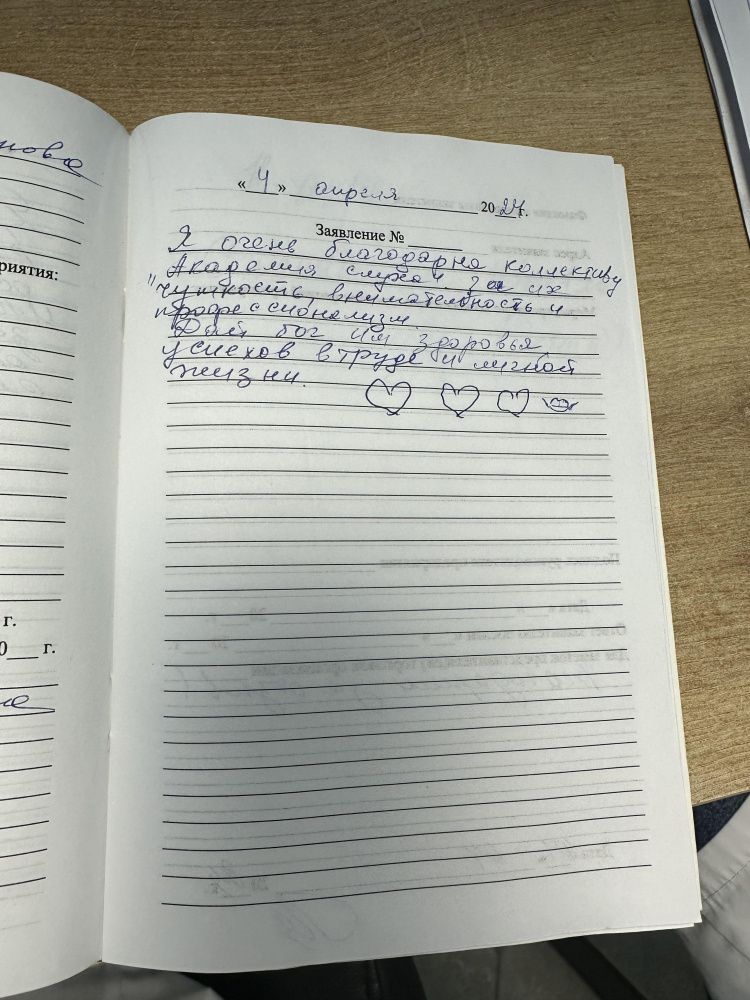 нова
риятия:
г.
0___ г.
на
«4» апреля 2024г.
Заявление № ______
Я очень благодарна коллективу
"Академия слуха" за их
чуткость, внимательность и
професссионализм.
Дай бог им здоровья
успехов в труде и личной
жизни.